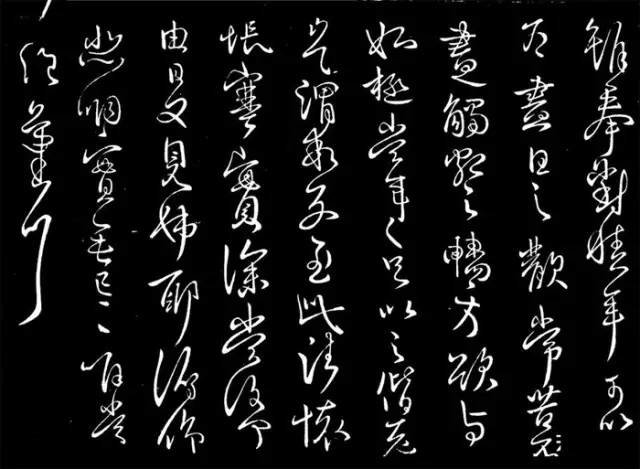 雖奉對積年可以
為盡日之歡常苦不
盡觸額之暢方欲與
姊極當年之疋以之偕老
豈謂乖別至此諸懷
悵塞實深當復何
由日夕見姊耶俯仰
悲咽實無已無已唯當
絕氣耳